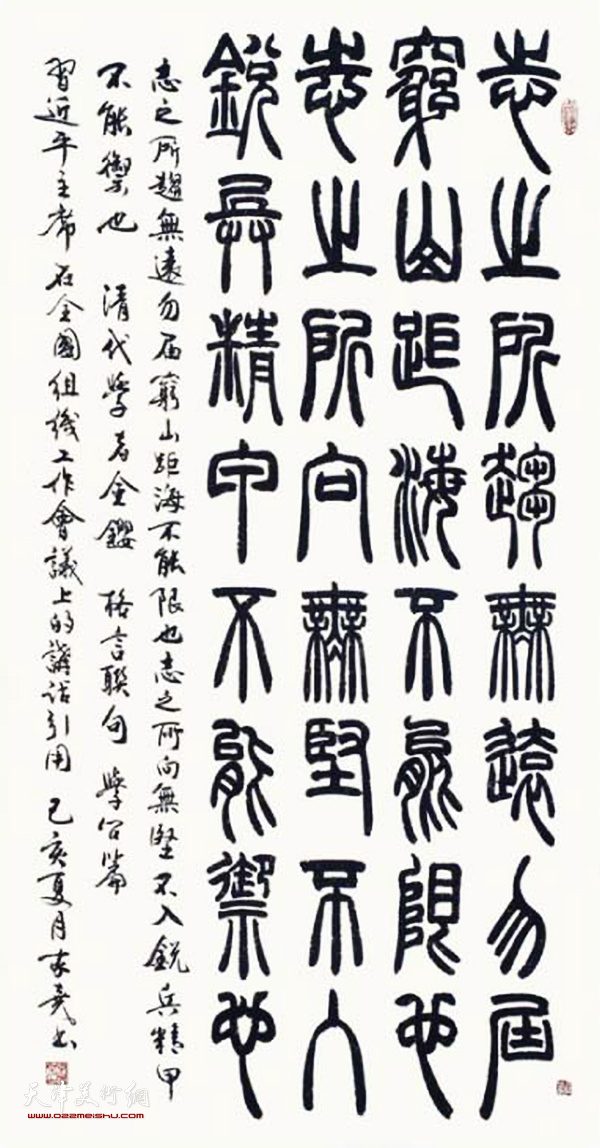 志之所趨無遠勿屆
窮山距海不能限也
志之所向無堅不入
銳兵精甲不能禦也
志之所趨無遠勿屆窮山距海不能限也志之所向無堅不入銳兵精甲
不能禦也 清代學者金鑀 格言聯句 學問篇
習近平主席在全國組織工作會議上的講話引用 己亥夏月 書
天津美術網
www.022meishu.com